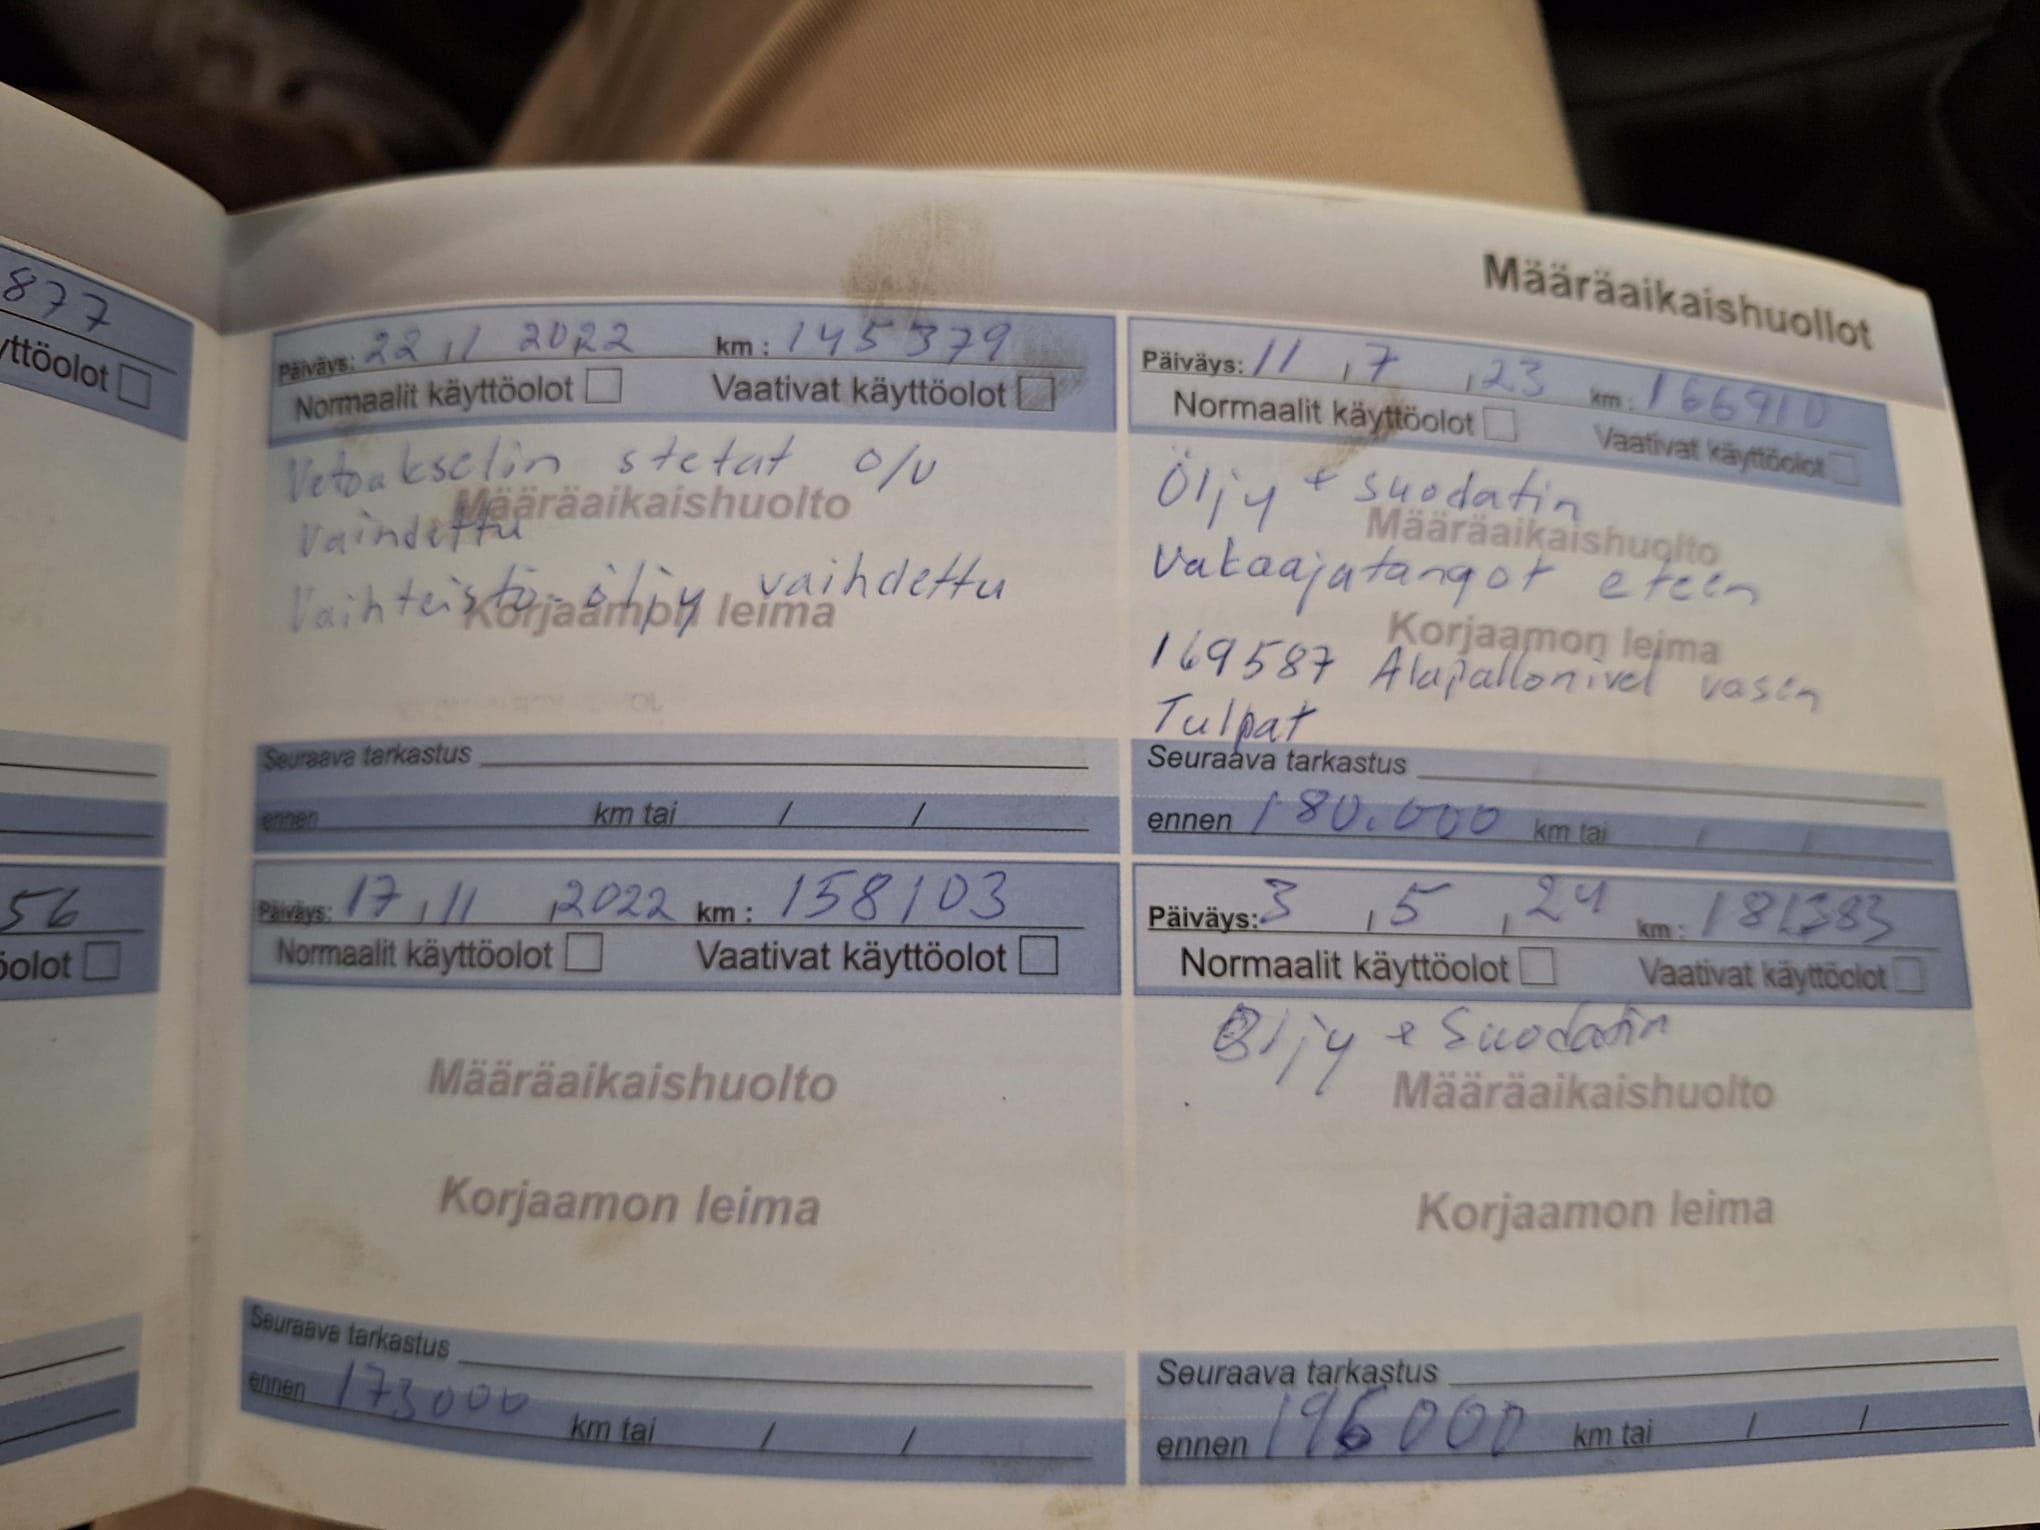 877
yttöolot
56
öolot
Määräaikaishuollot
Päiväys: 22 , 1 2022 km : 145379
Normaalit käyttöolot Vaativat käyttöolot
Vetoakselin stefat o/v
Määräaikaishuolto
Vaihdettu
Vaihteistö-öljy vaihdettu
Korjaamon leima
Seuraava tarkastus
ennen km tai / /
Päiväys: 11 , 7 , 23 km : 166910
Normaalit käyttöolot Vaativat käyttöolot
Öljy + suodatin
Määräaikaishuolto
Vakaajatangot eteen
Korjaamon leima
169587 Alapallonivel vasen
Tulpat
Seuraava tarkastus
ennen 180.000 km tai / /
Päiväys: 17 , 11 , 2022 km : 158103
Normaalit käyttöolot Vaativat käyttöolot
Määräaikaishuolto
Korjaamon leima
Seuraava tarkastus
ennen 173000 km tai / /
Päiväys: 3 , 5 , 24 km : 181383
Normaalit käyttöolot Vaativat käyttöolot
Öljy + Suodatin
Määräaikaishuolto
Korjaamon leima
Seuraava tarkastus
ennen 196000 km tai / /